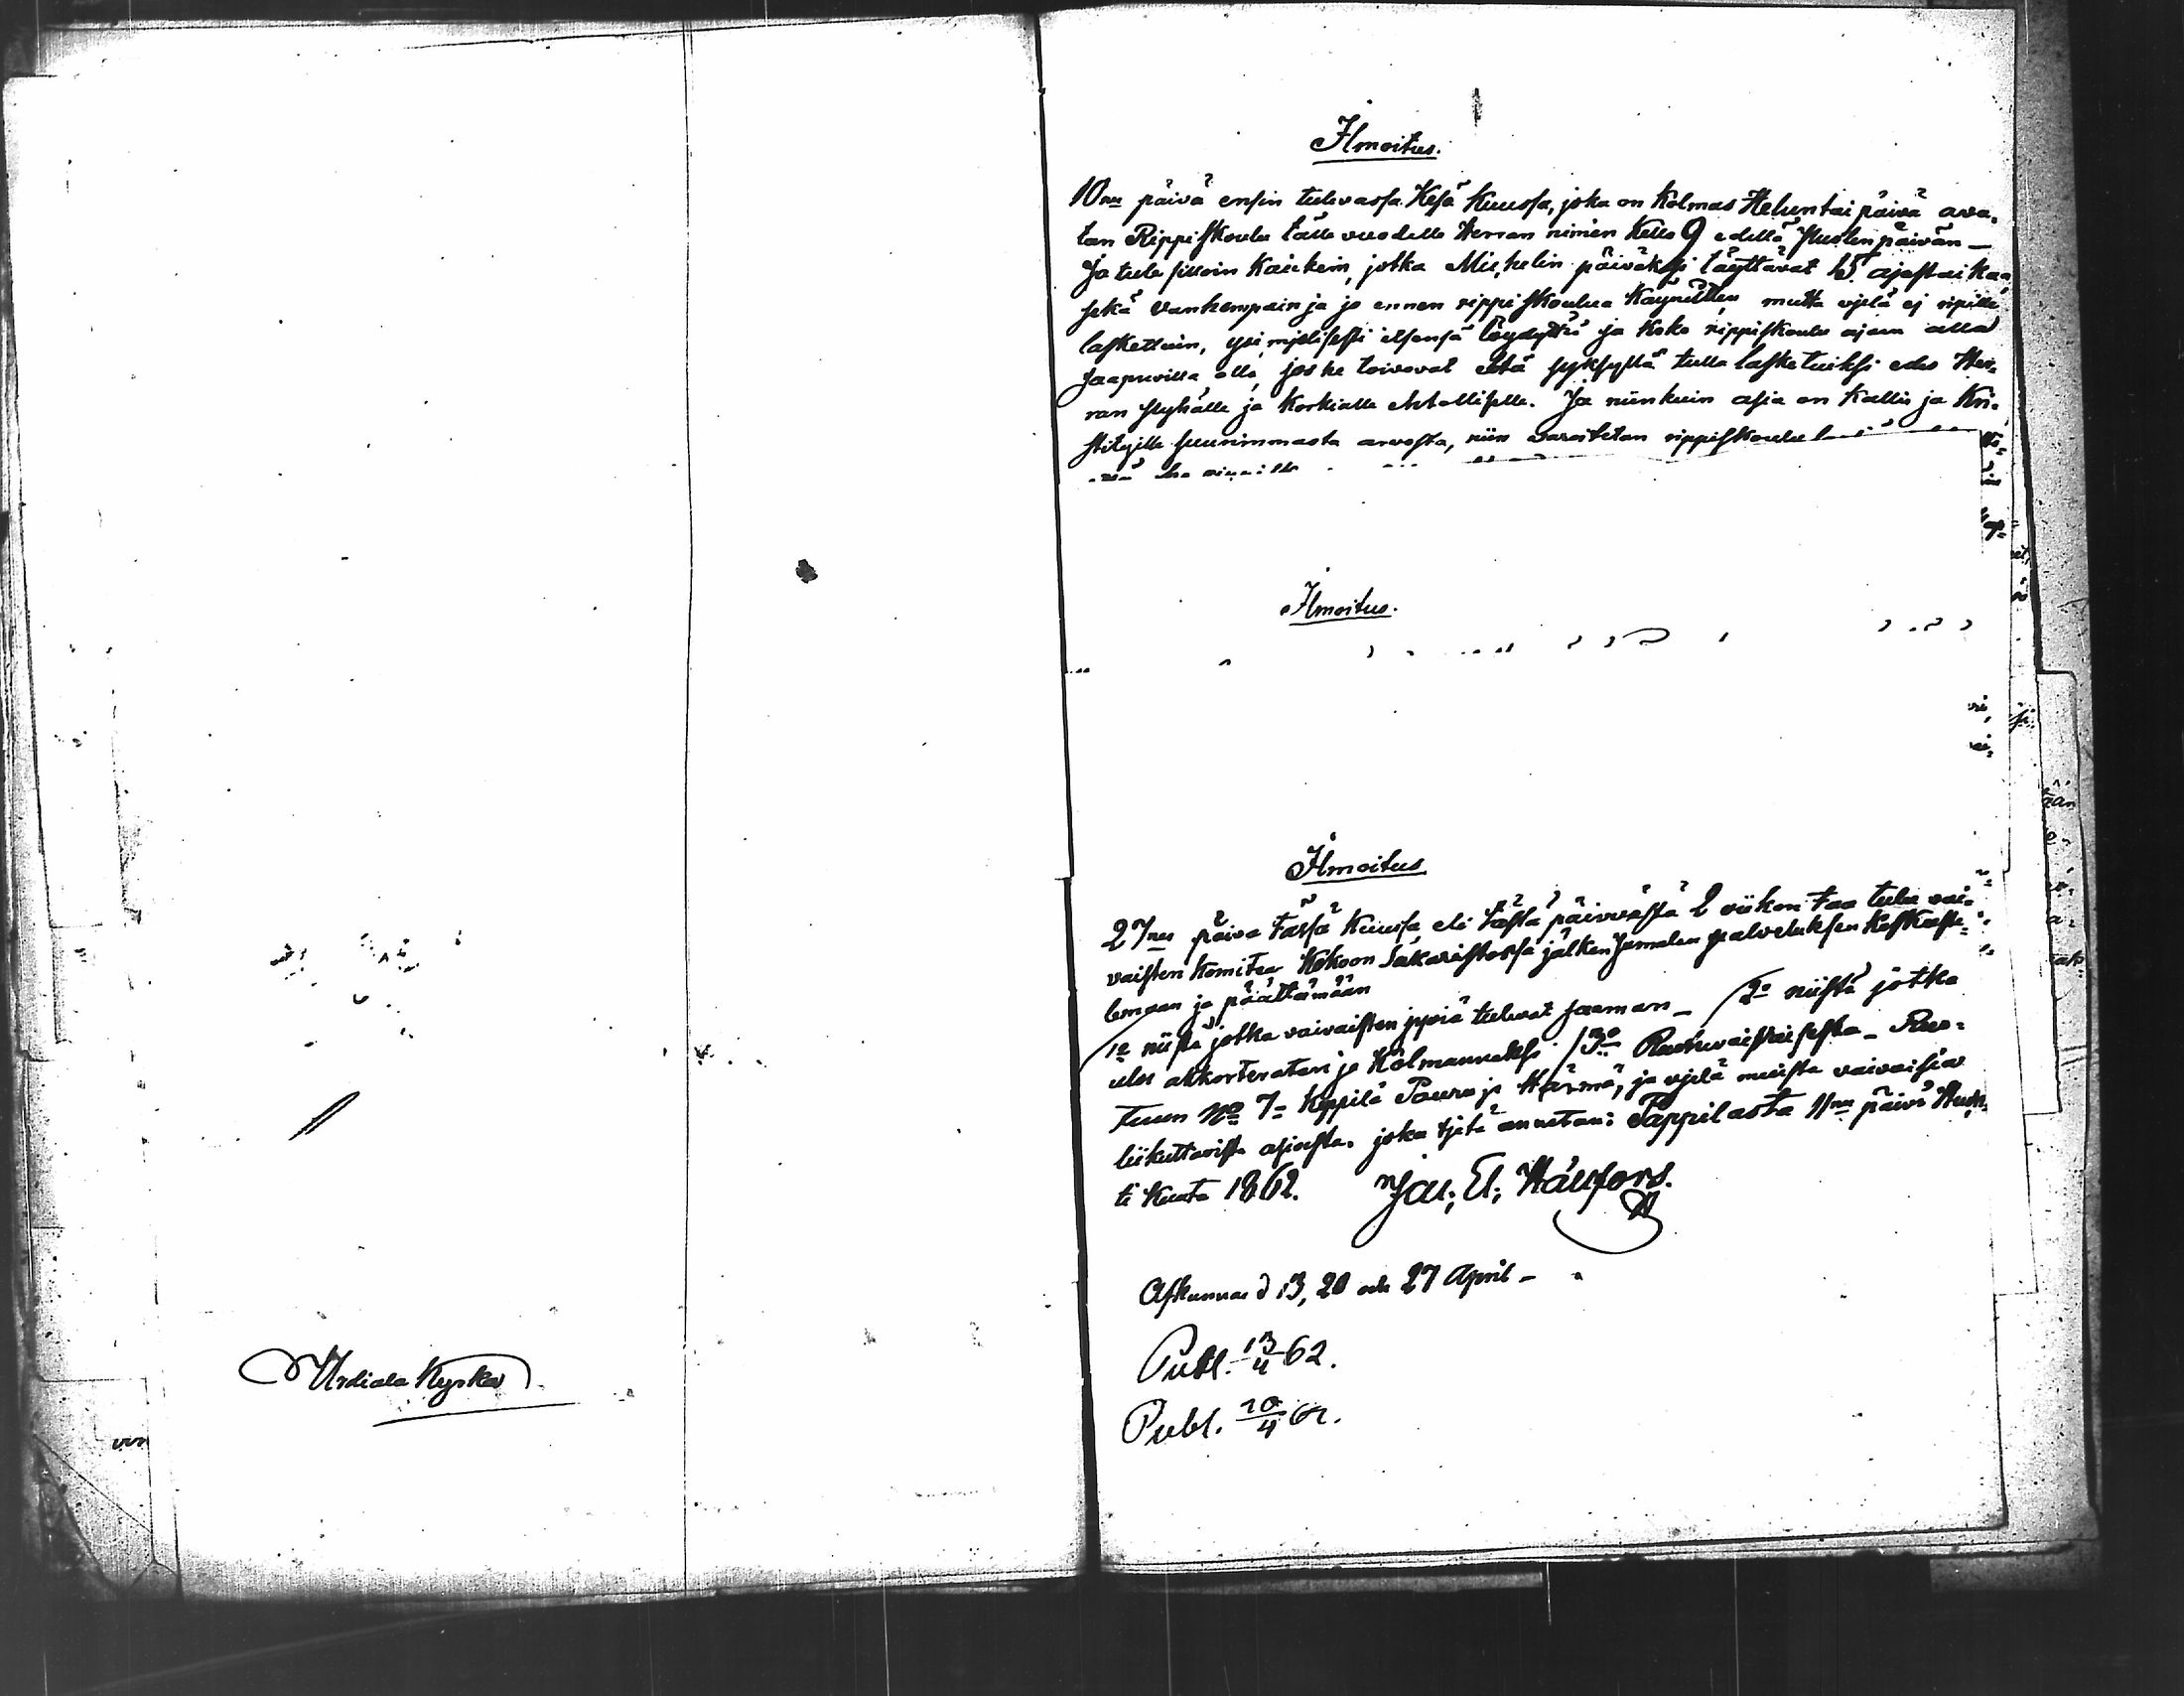 Urdiala Kyrka
Ilmoitus.
10nes päivä ensin tulevassa Kesä Kuussa, joka on Kolmas Heluntai päivä ava-
tan Rippiskoulu tälle vuodelle Herran nimen Kello 9 edellä Puolenpäivän —
ja tule silloin Kaikein, jotka Michelin päiväksi täyttävät 15 ajastaikaa,
sekä vanhempain ja jo ennen rippiskoulua Käyneitten, mutta vjelä ej ripille
laskettuin, itsensä löydyttä ja koko rippiskoulu ajan alla
saapuvilla olla, jos he toivovat että syksyllä tulla lasketuiksi edes Her-
ran Pyhälle ja Korkialle ehtolliselle. Ja niinkuin asia on Kallis ja Kri-
stityille suurimmasta arvosta, niin varoitetan rippiskoulu
Ilmoitus.
Ilmoitus
27nes päivä tässä Kuussa eli tästä päivästä 2 viikon taa tule vai-
vaisten Komitea Kokoon Sakaristossa jälken Jumalan palveluksen Keskuste-
lemaan ja päättämään
1o niistä jotka vaivaisten apua tulevat saaman — 2o niistä jotka
ulos akkorteratan ja Kolmanneksi 3o Ruotuvaivaisesta — Ruo-
tuun No 7 — Keppilä Paura ja Härmä, ja vjelä muista vaivaisia
liikuttavista asioista. joka tjetä annetan: Pappilasta 11nes päivä Huh-
ti Kuuta 1862. Jac. El. Hällfors.
Afkunnas d 13, 20 och 27 April —
Publ. 13/4 62.
Publ. 20/4 62.